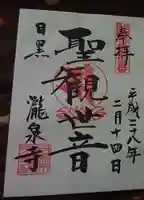 奉拝
平成二八年
二月十四日
聖観世音
目黒
瀧泉寺